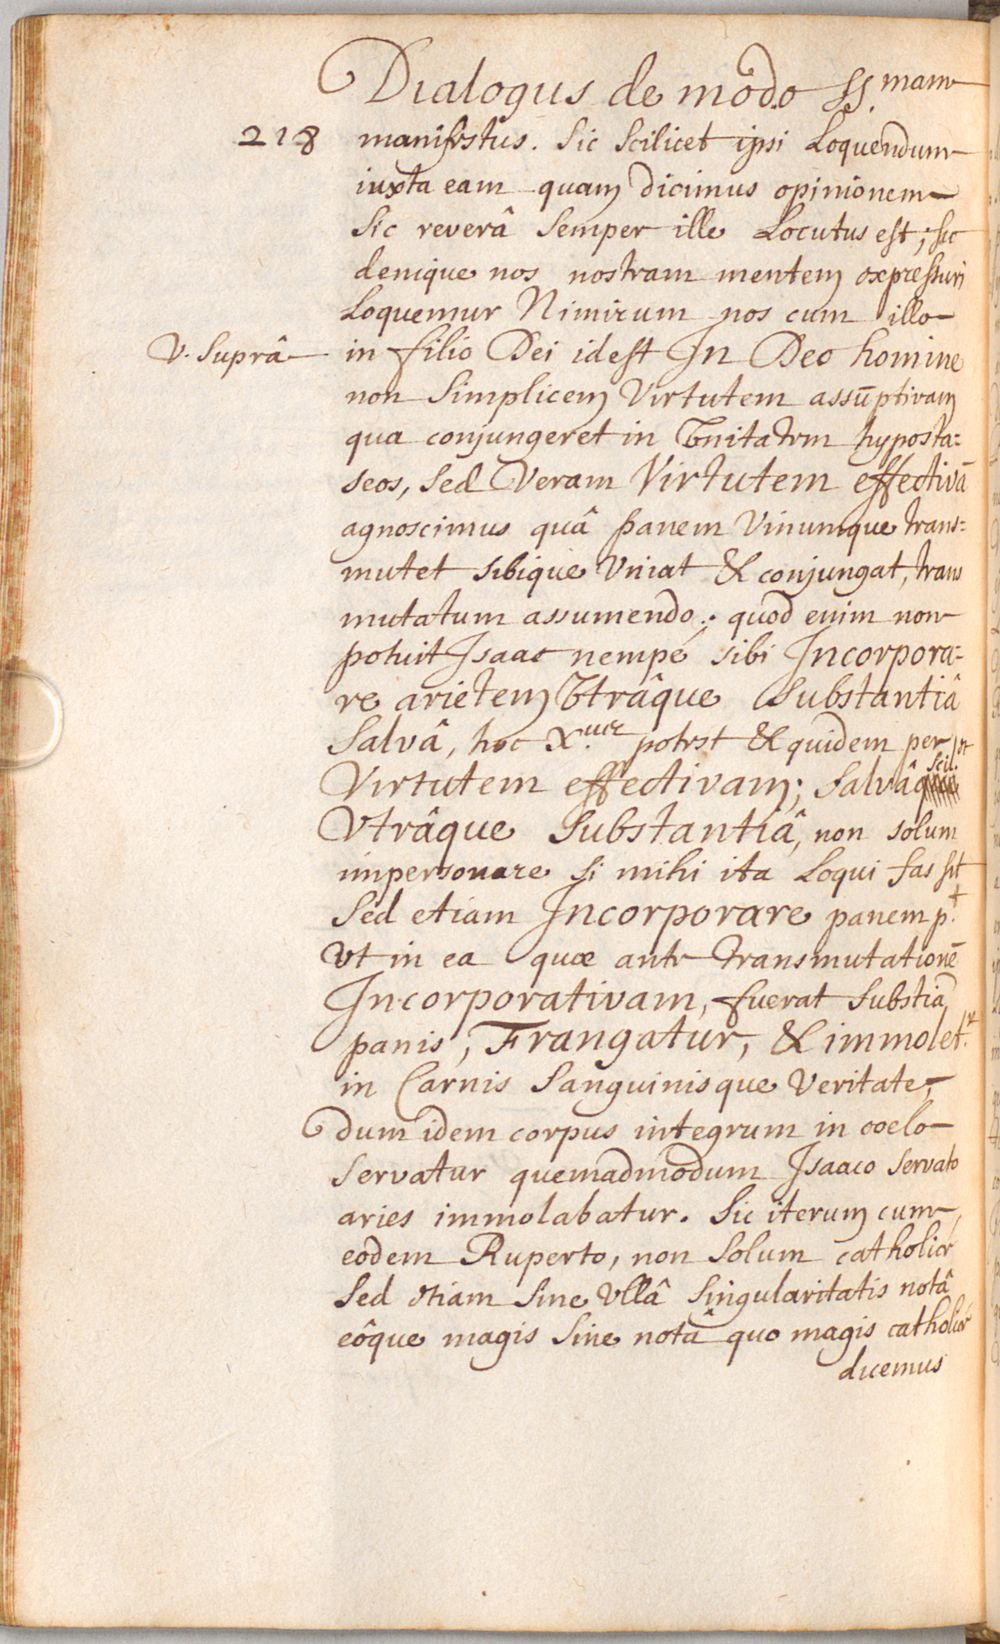 Dialogus de modo SS.mam
218 manifestus. Sic Scilicet ipsi Loquendum
iuxta eam quam dicimus opinionem
Sic reverâ Semper ille Locutus est; sic
denique nos nostram mentem expressuri
Loquemur Nimirum nos cum illo
V. Suprâ in filio Dei idest In Deo homine
non Simplicem Virtutem assūptivam
qua conjungeret in Vnitatem hyposta:
seos, Sed Veram Virtutem effectivā
agnoscimus quâ panem Vinumque trans:
mutet sibique Vniat & conjungat, trans
mutatum assumendo; quod enim non
potuit Isaac nempé sibi Incorpora:
re arietem Vtrâque Substantiâ
Salvâ, hoc X.us potest & quidem per
Virtutem effectivam; Salvâ scil.
Vtrâque Substantiâ, non solum
impersonare si mihi ita Loqui fas sit
Sed etiam Incorporare panem p.t
Vt in ea quæ ante transmutationē
Incorporativam, fuerat Substia
panis, Frangatur, & immolet.r
in Carnis Sanguinisque Veritate,
dum idem corpus integrum in coelo
Servatur quemadmodum Isaaco Servato
aries immolabatur. Sic iterum cum
eodem Ruperto, non Solum catholice
Sed etiam Sine Vllâ Singularitatis notâ
eôque magis Sine notâ quo magis catholicé
dicemus